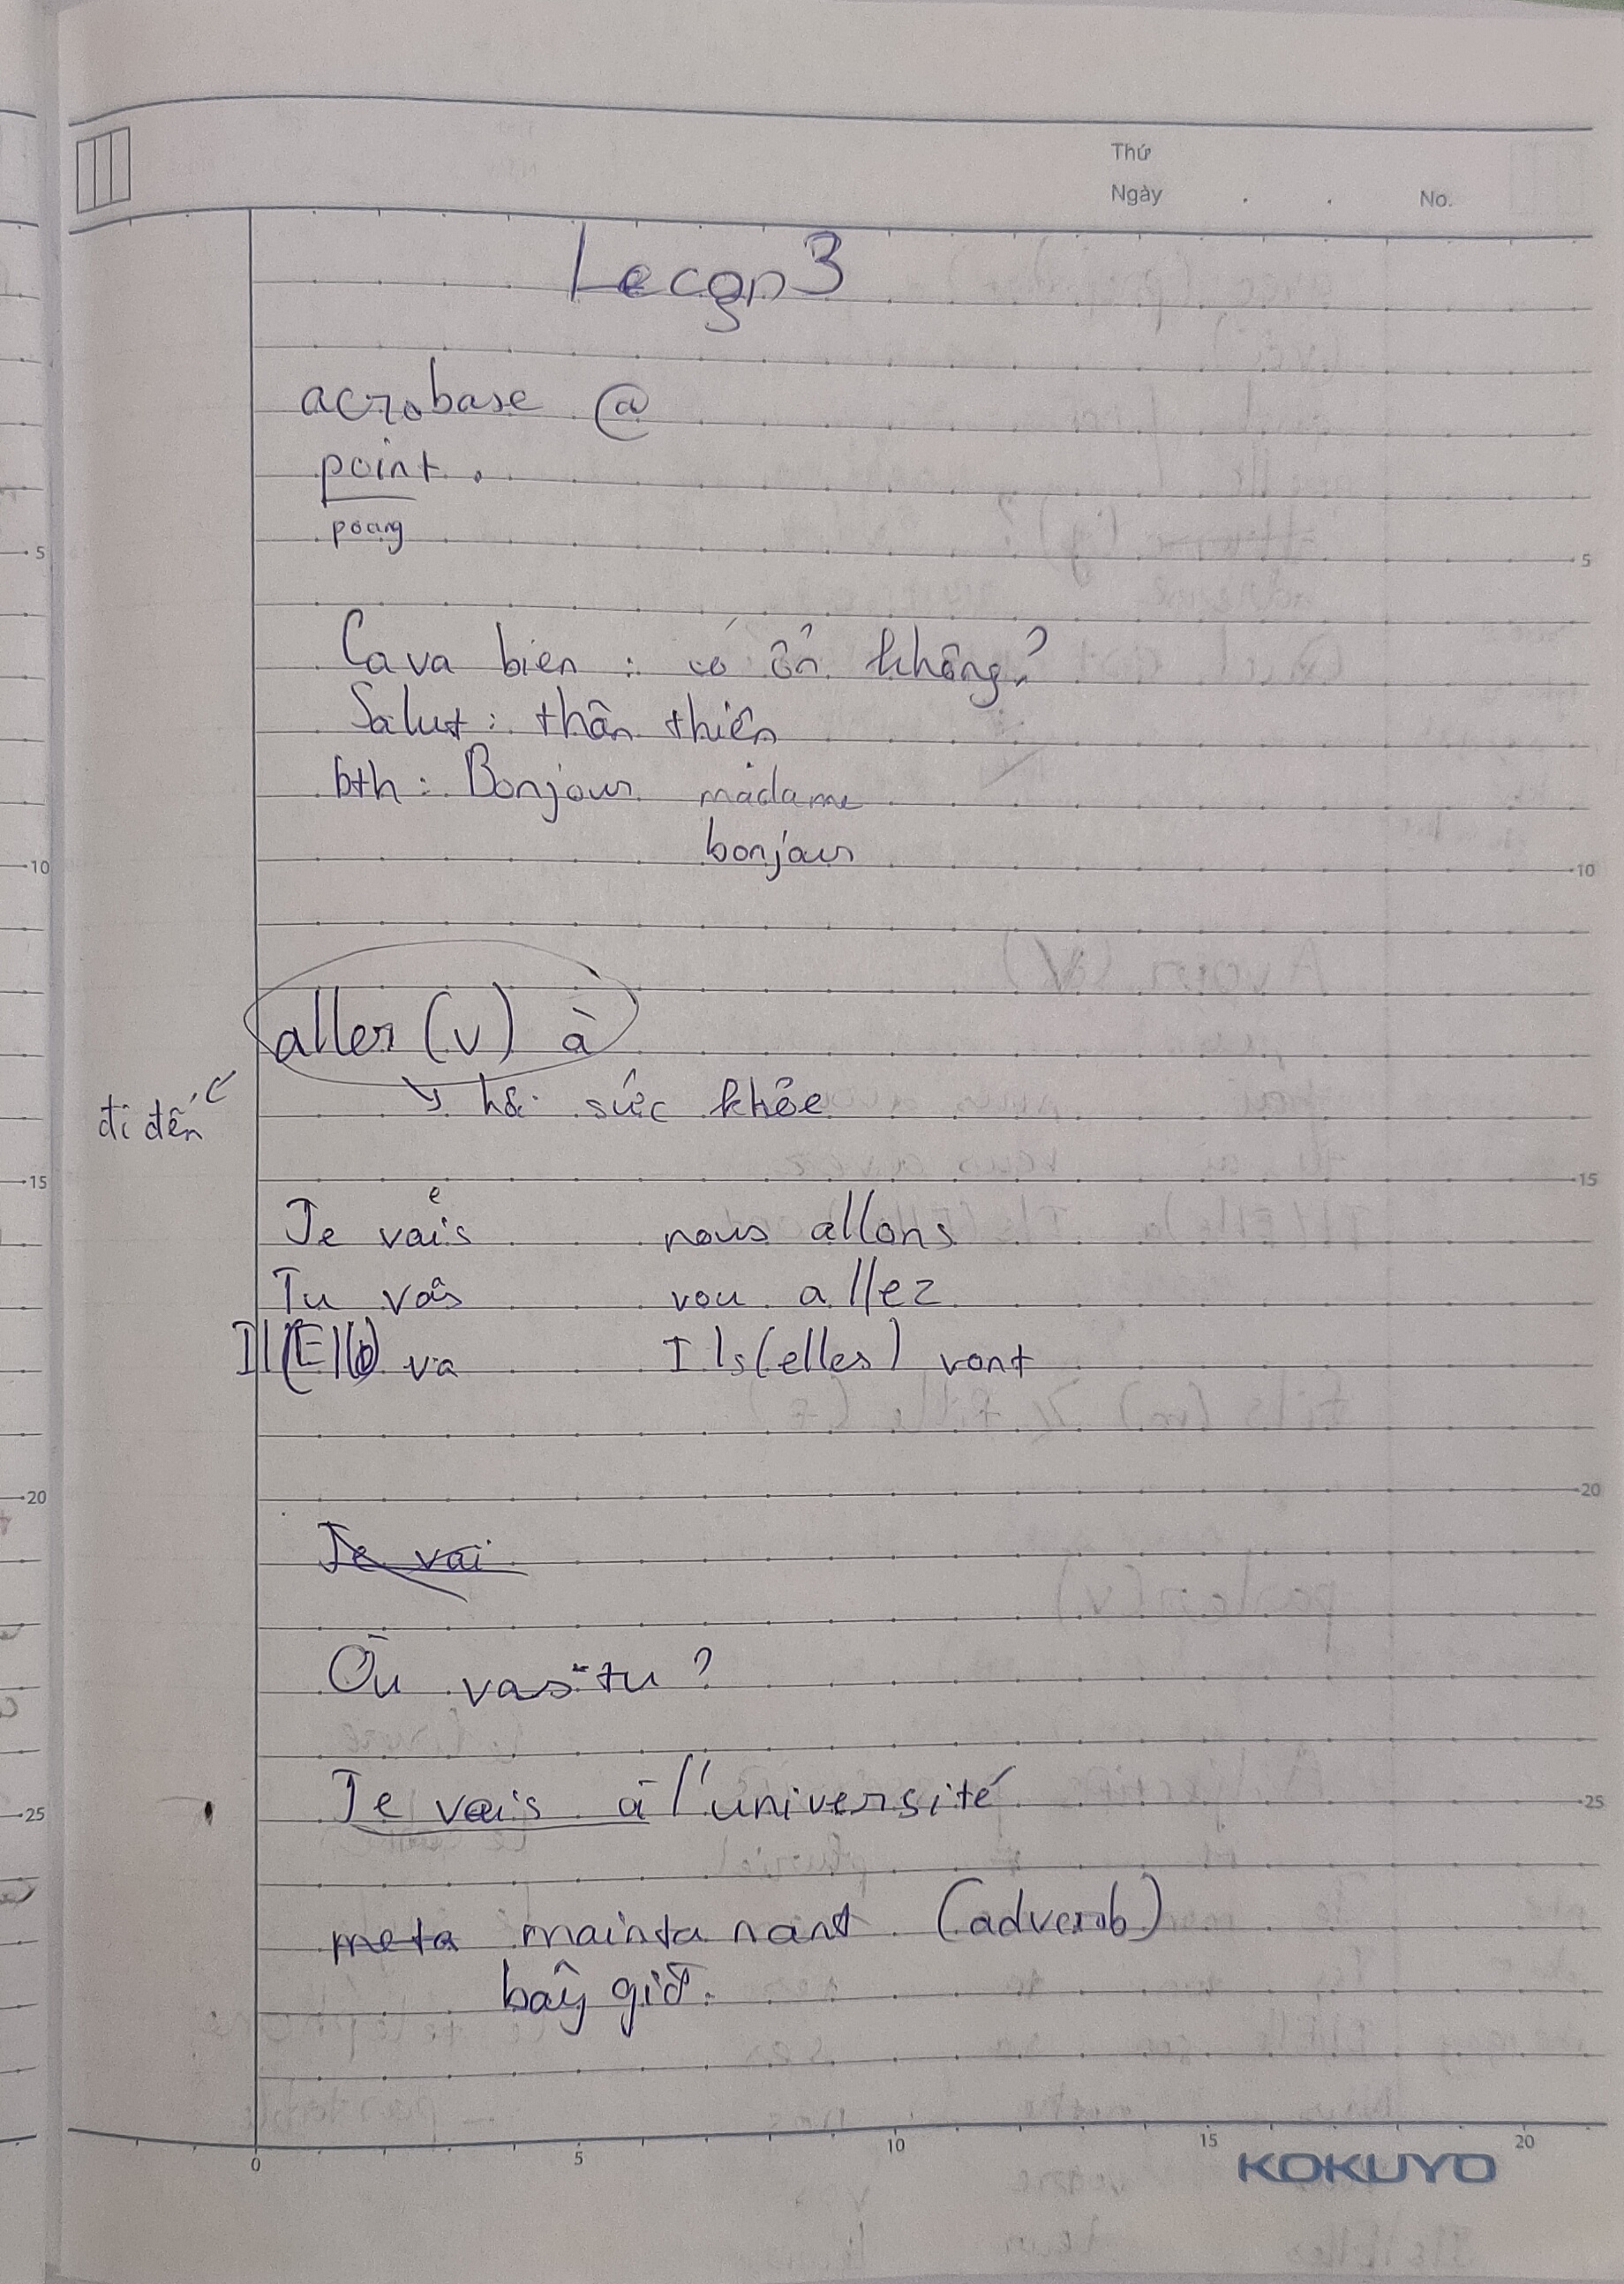 Thứ
Ngày . . No.
Leçon 3
acrobase @
point .
poang
Ca va bien : có ổn không?
Salut : thân thiện
bth : Bonjour madame
bonjour
aller (v) à
đi đến
hỏi sức khỏe
Je vais nous allons
Tu vas vou allez
Il (Elle) va Ils (elles) vont
Je vai
Où vas-tu ?
Je vais à l'université
meta maintanant (adverb)
bây giờ.
KOKUYO